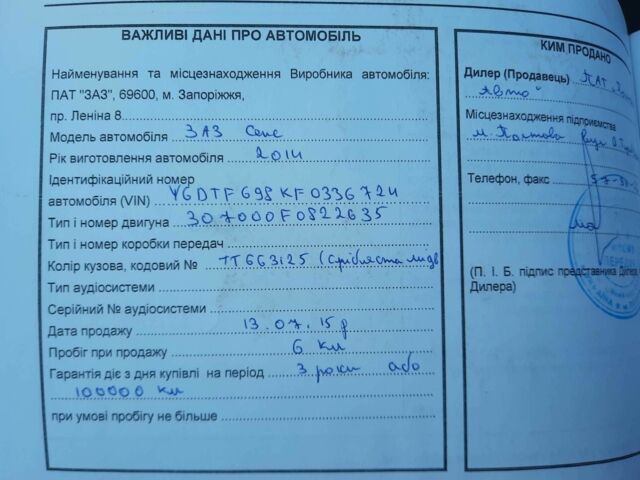 ВАЖЛИВІ ДАНІ ПРО АВТОМОБІЛЬ
Найменування та місцезнаходження Виробника автомобіля:
ПАТ "ЗАЗ", 69600, м. Запоріжжя,
пр. Леніна 8
Модель автомобіля ЗАЗ Сенс
Рік виготовлення автомобіля 2014
Ідентифікаційний номер
автомобіля (VIN) Y6DTF698KF0336724
Тип і номер двигуна 307000F0822635
Тип і номер коробки передач
Колір кузова, кодовий № TT663125 (срібляста мідь
Тип аудіосистеми
Серійний № аудіосистеми
Дата продажу 13.07.15р
Пробіг при продажу 6 км
Гарантія діє з дня купівлі на період 3 роки або
100000 км
при умові пробігу не більше
КИМ ПРОДАНО
Дилер (Продавець) ПАТ
Авто"
Місцезнаходження підприємства
м. Полтава вул
Телефон, факс
(П. І. Б. підпис представника Дилера,
Дилера)